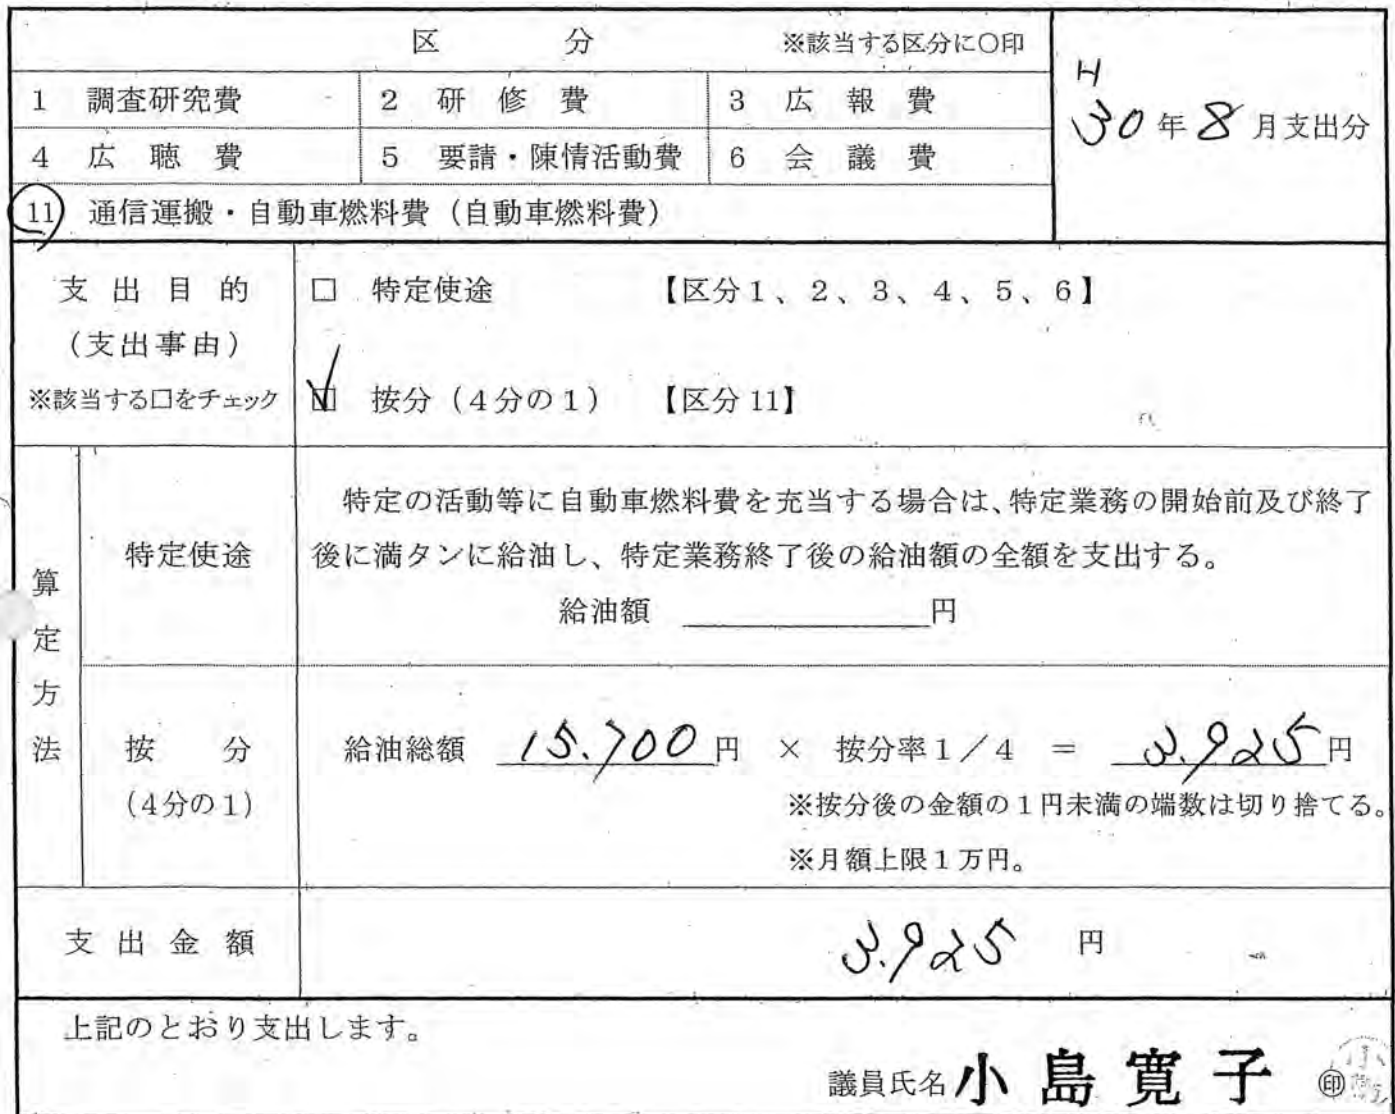 区 分 ※該当する区分に〇印
H
30年8月支出分
1 調査研究費 2 研修費 3 広報費
4 広聴費 5 要請・陳情活動費 6 会議費
11 通信運搬・自動車燃料費（自動車燃料費）
支出目的
（支出事由）
※該当する□をチェック
□ 特定使途 【区分1、2、3、4、5、6】
☑ 按分（4分の1） 【区分11】
算定方法
特定使途
特定の活動等に自動車燃料費を充当する場合は、特定業務の開始前及び終了
後に満タンに給油し、特定業務終了後の給油額の全額を支出する。
給油額 円
按分
（4分の1）
給油総額 15.700円 × 按分率1／4 ＝ 3.925円
※按分後の金額の1円未満の端数は切り捨てる。
※月額上限1万円。
支出金額 3.925 円
上記のとおり支出します。
議員氏名 小島寛子 ㊞